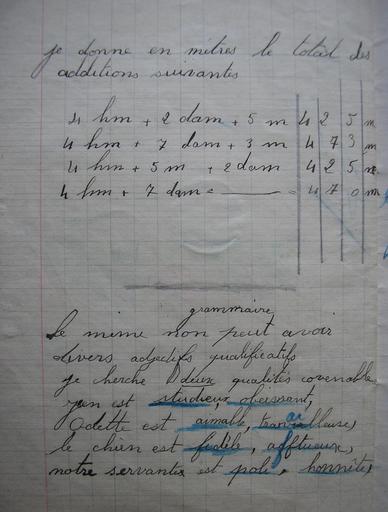 je donne en mètres le total des
additions suivantes
4 hm + 2 dam + 5 m 4 2 5 m
4 hm + 7 dam + 3 m 4 7 3 m
4 hm + 5 m + 2 dam 4 2 5 m
4 hm + 7 dam = 4 7 0 m
grammaire
Le même non peut avoir
divers adjectifs qualificatifs
je cherche deux qualités convenable
Jean est studieux, obeissant,
Odette est aimable, travailleuse,
le chien est fidèle, afftueux,
notre servante est polie, honnête,